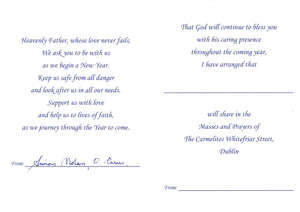 Heavenly Father, whose love never fails,
We ask you to be with us
as we begin a New Year.
Keep us safe from danger
and look after us in all our needs.
Support us with love
and help us to lives of faith,
as we journey through the Year to come.
From: Simon Nolan, O. Carm.
That God will continue to bless you
with his caring presence
throughout the coming year,
I have arranged that
will share in the
Masses and Prayers of
The Carmelites Whitefriar Street,
Dublin
From: